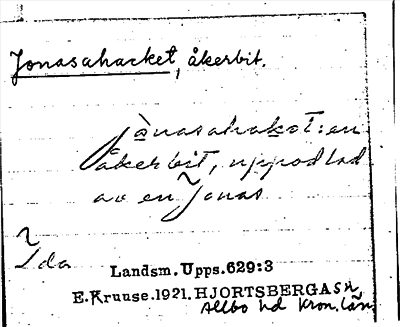 Jonasahacket, åkerbit.
jànasahakət: en
åkerbit, uppodlad
av en Jonas
Ida
Landsm. Upps. 629:3
E.Kruuse.1921. HJORTSBERGA SN,
Allbo hd Kron. län